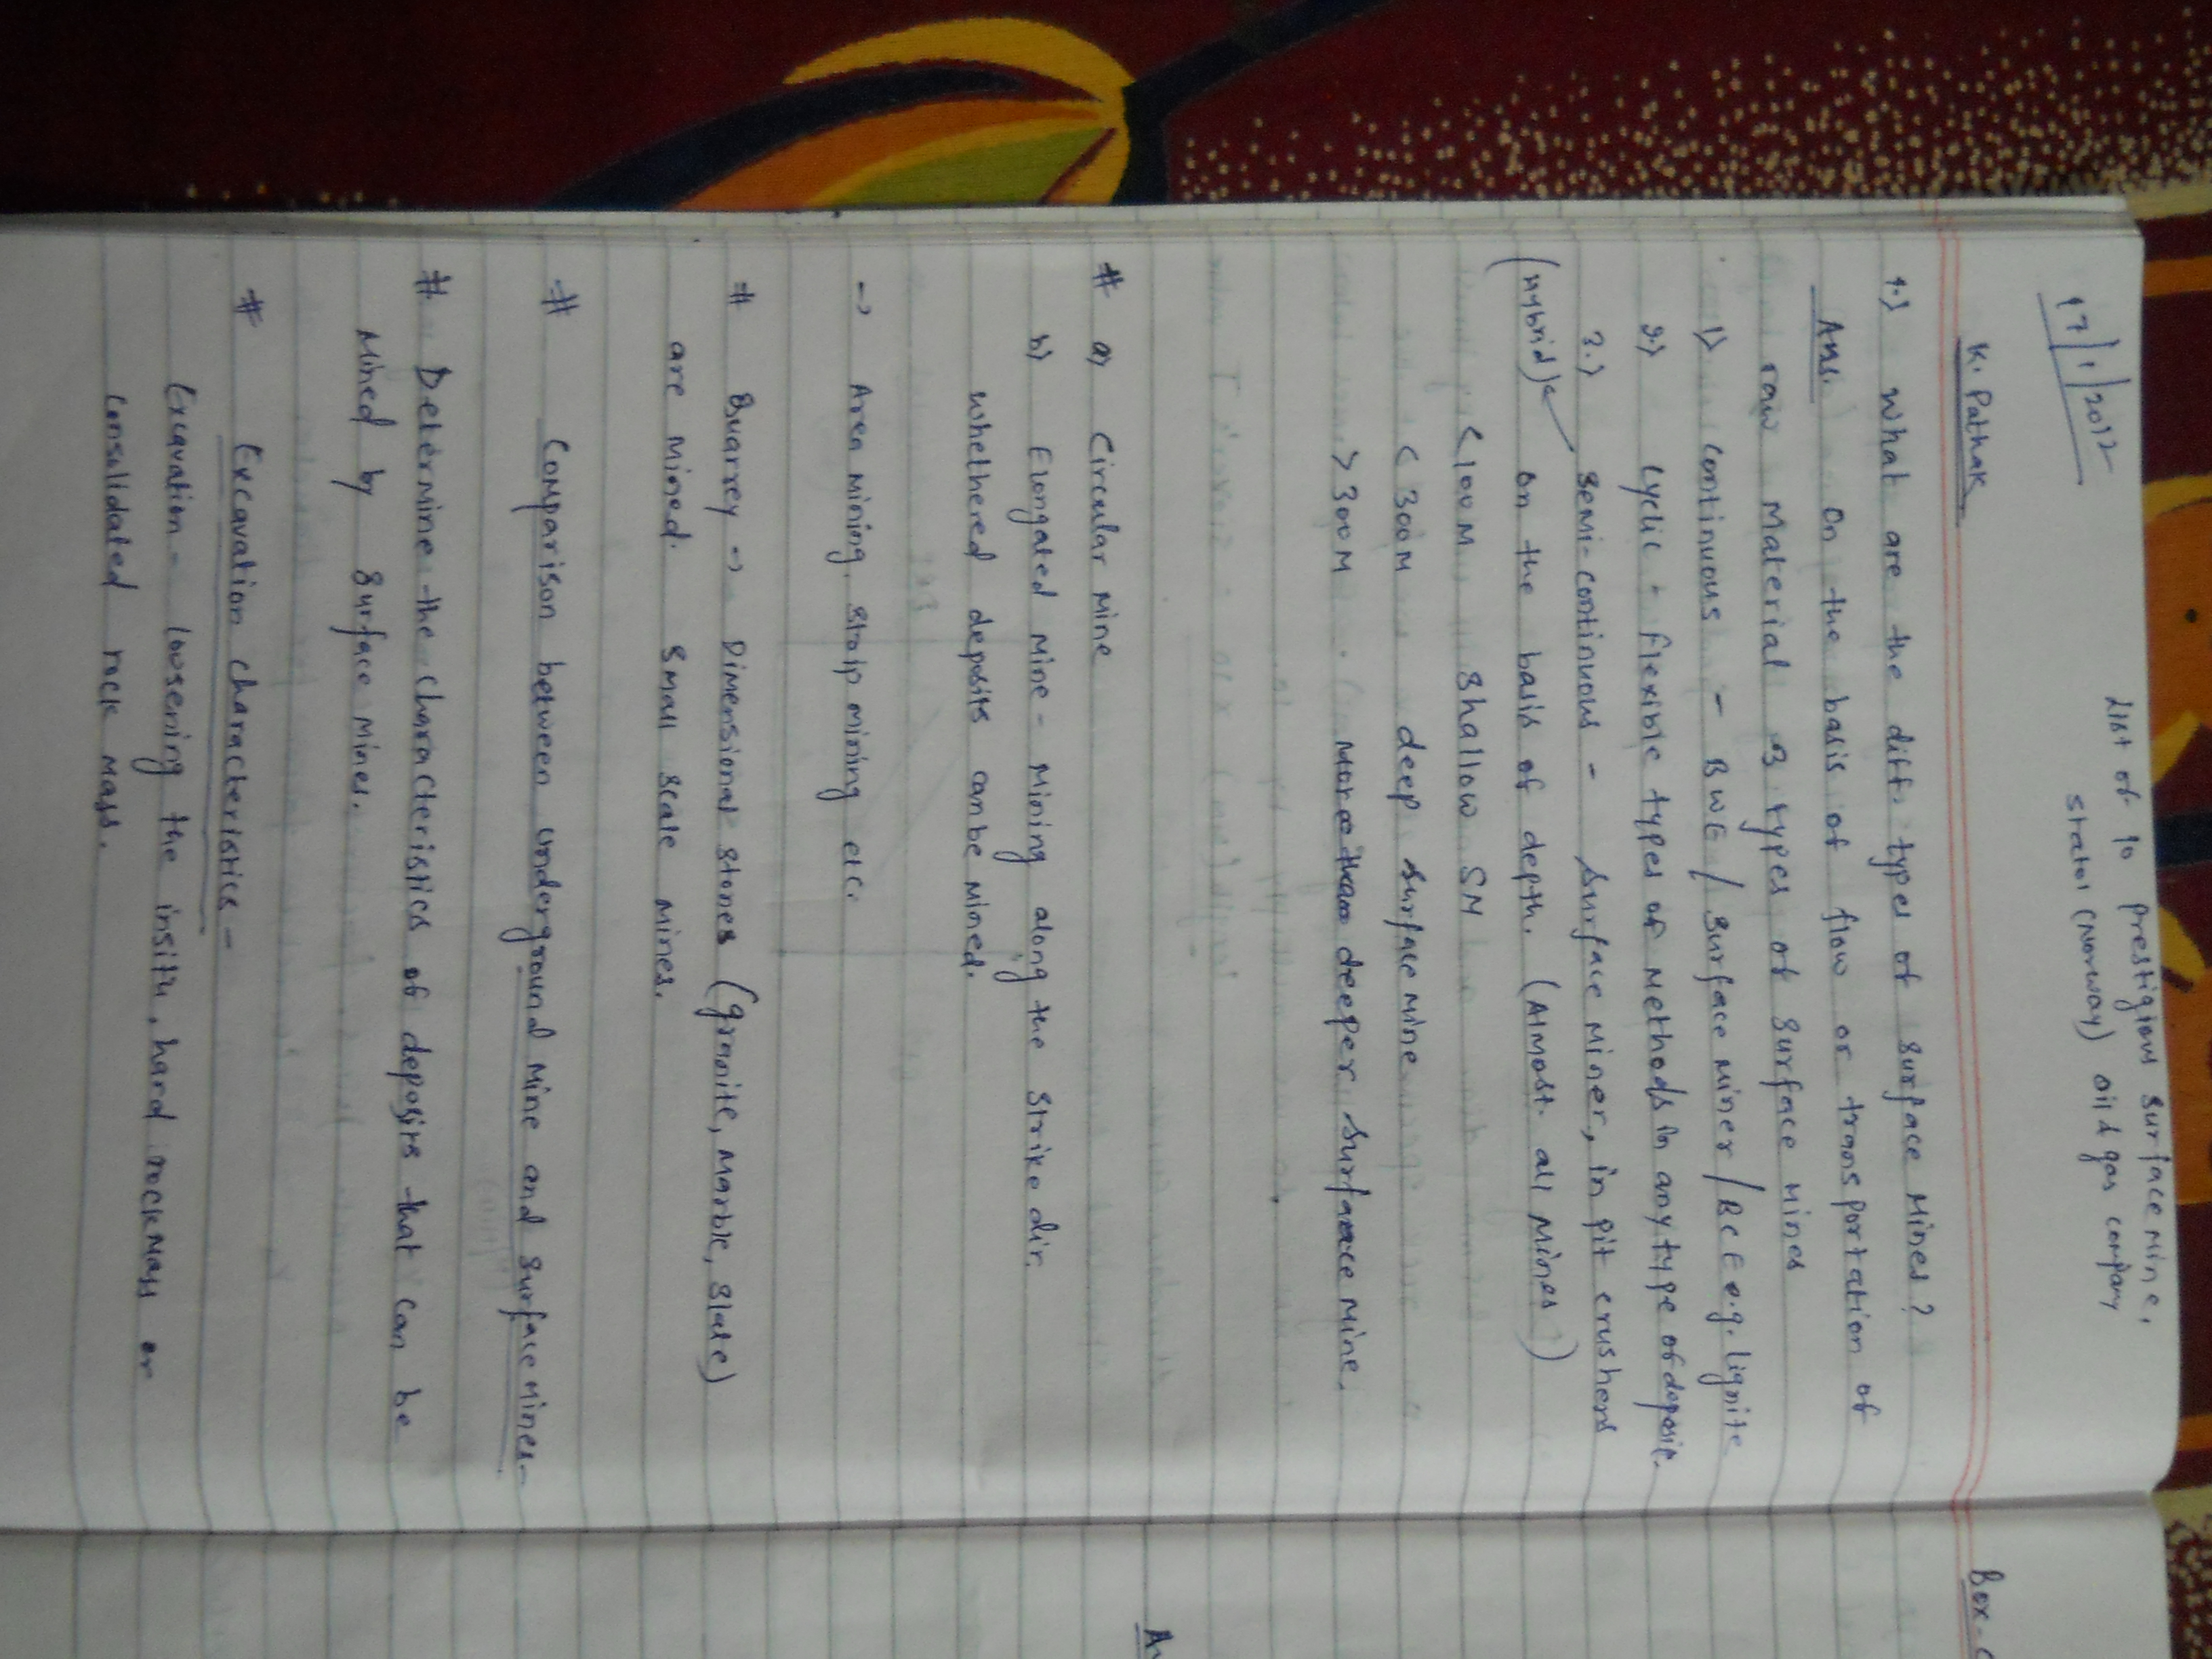 17/1/2012
List of 10 prestigious surface mine,
statoil (Norway) oil & gas company
K. Pathak
1.) What are the diff. types of surface mines?
Ans. On the basis of flow or transportation of
raw material 3 types of surface mines
1) Continuous - BWE / surface miner / BCE e.g. lignite
2.) Cyclic + flexible types of methods in any type of deposit.
3.) Semi-continuous - surface miner, in pit crushers
(Hybrid) on the basis of depth. (Almost all mines)
<100m shallow SM
<300m deep surface mine
>300m more than deeper surface mine.
# a) Circular mine
b) Elongated mine - mining along the strike dir.
whethered deposits can be mined.
→ Area mining, strip mining etc.
# Quarrey → Dimensional stones (granite, marble, slate)
are mined. Small scale mines.
# Comparison between underground mine and surface mines-
# Determine the characteristics of deposits that can be
mined by surface mines.
# Excavation characteristics -
Excavation - loosening the insitu, hard rockmass or
consolidated rock mass.
Box-